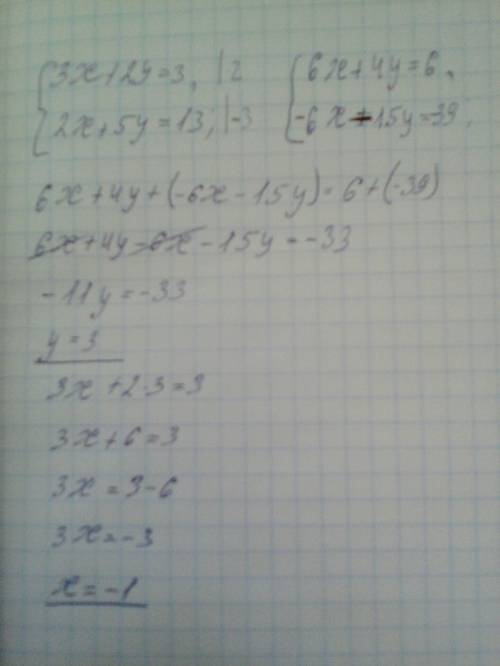 3x+2y=3, |2 6x+4y=6,
2x+5y=13; |-3 -6x-15y=-39;
6x+4y+(-6x-15y)=6+(-39)
6x+4y-6x-15y=-33
-11y=-33
y=3
3x+2·3=3
3x+6=3
3x=3-6
3x=-3
x=-1